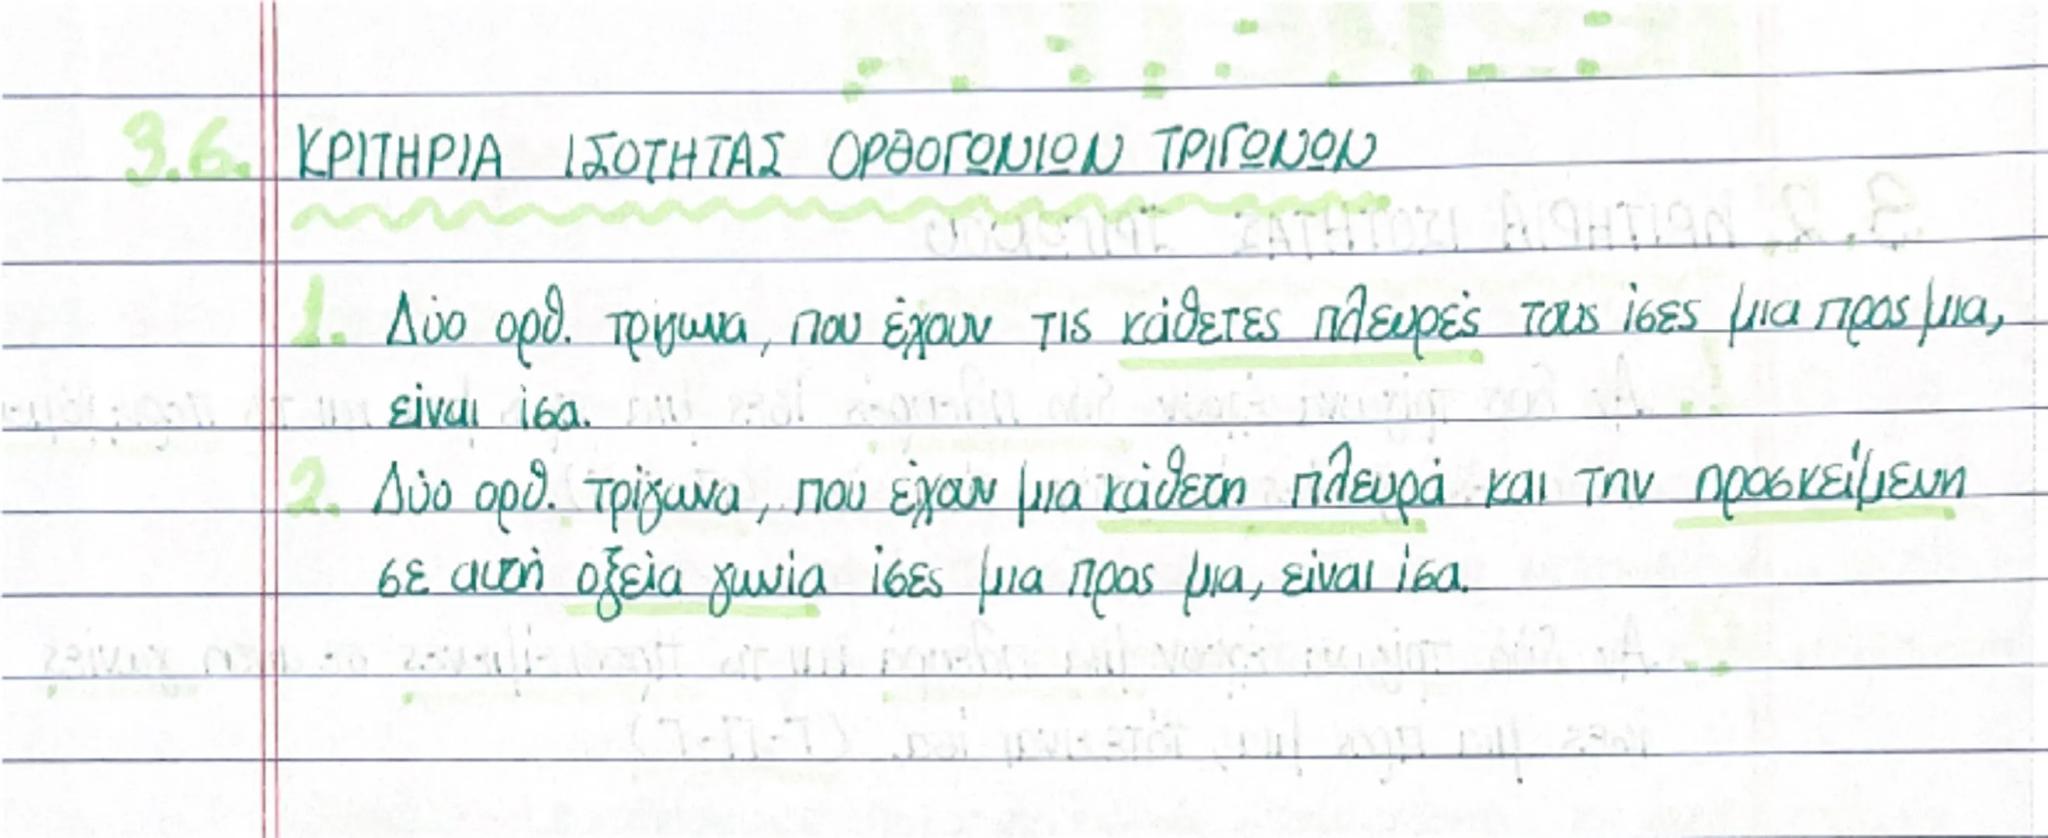 3.6. ΚΡΙΤΗΡΙΑ ΙΣΟΤΗΤΑΣ ΟΡΘΟΓΩΝΙΩΝ ΤΡΙΓΩΝΩΝ
1. Δύο ορθ. τρίγωνα, που έχουν τις κάθετες πλευρές τους ίσες μια προς μια,
είναι ίσα.
2. Δύο ορθ. τρίγωνα, που έχουν μια κάθετη πλευρά και την προσκείμενη
σε αυτή οξεία γωνία ίσες μια προς μια, είναι ίσα.